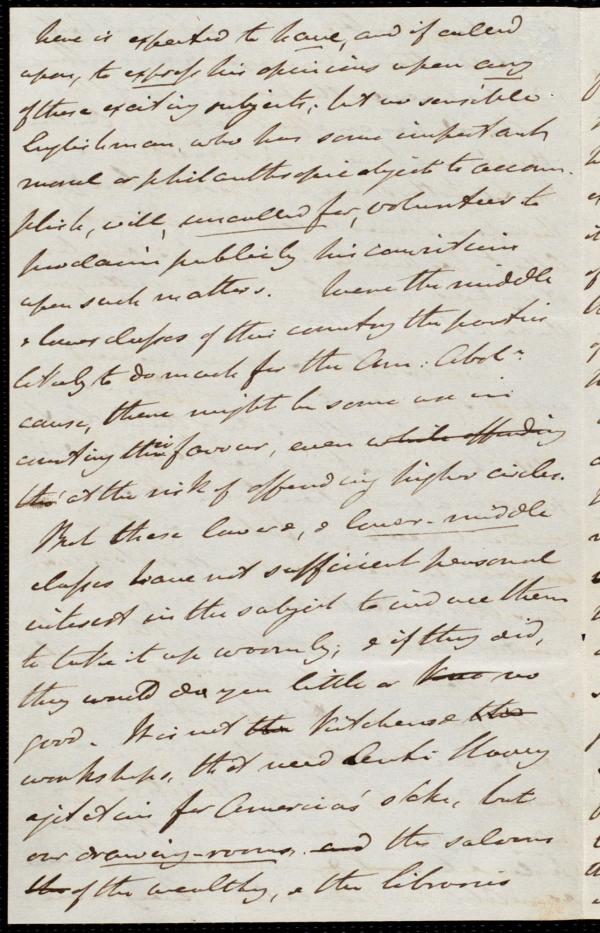 here is expected to have, and if called
upon, to express his opinions upon any
of these exciting subjects; but no sensible
Englishman, who has some important
moral or philanthropic object to accom-
plish, will, uncalled for, volunteer to
proclaim publicly his convictions
upon such matters. Were the middle
& lower classes of this country the parties
likely to do much for the Am: Abolⁿ
cause, there might be some use in
courting their favour, even while offending
the at the risk of offending higher circles.
But these lower, & lower-middle
classes have not sufficient personal
interest in the subject to induce them
to take it up warmly; & if they did,
they would do you little or no
good. It is not the kitchens &
workshops, that need Anti Slavery
agitation for America's sake, but
our drawing-rooms, and the saloons
the of the wealthy, & the libraries